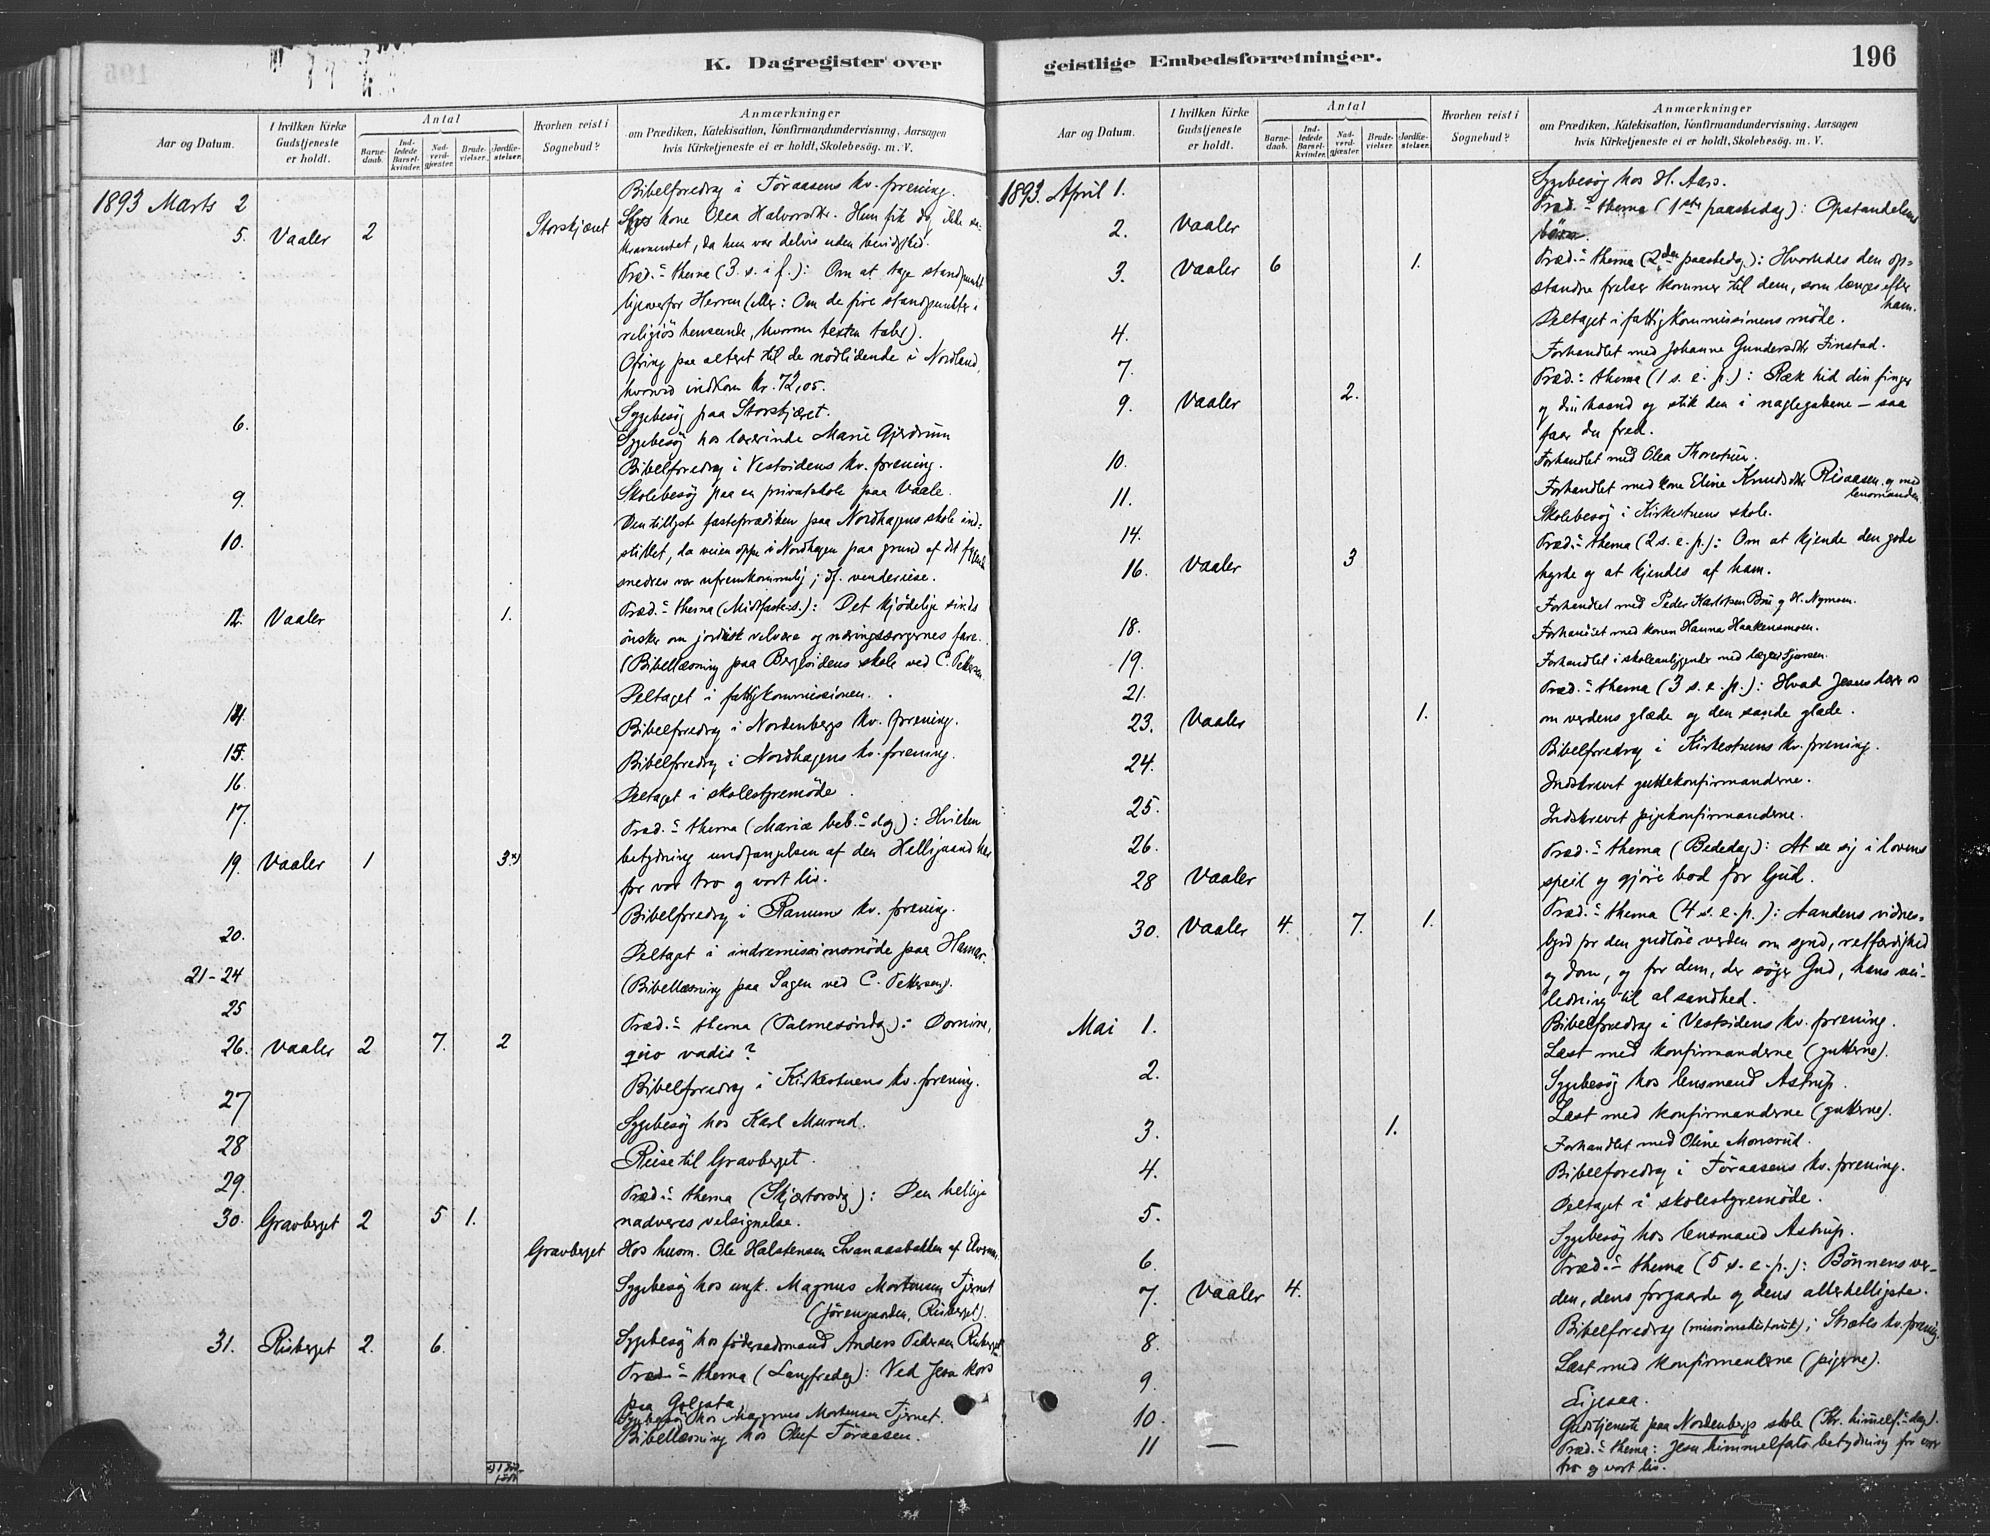 K. Dagregister over
Aar og Datum.
I hvilken Kirke Gudstjeneste er holdt.
Antal
Barnedaab.
Indledede Barselkvinder.
Nadverdgjæster.
Brudevielser.
Jordfæstelser.
Hvorhen reist i Sognebud?
Anmærkninger
om Prædiken, Katekisation, Konfirmandundervisning, Aarsagen
hvis Kirketjeneste ei er holdt, Skolebesøg. m. V.
1893 Marts 2
Bibelforedrag i Föraasens kv. forening.
5. Vaaler 2 Storskjæret
kone Olea Halvorsdtr. Hun fik dog ikke sa-
kramentet, da hun var delvis uden bevidsthed.
Præd.s thema (3. s. i f.): Om at tage standpunkt
ligeoverfor Herren (eller: Om de fire standpunkter i
religiös henseende, hvorom texten taler).
Ofring paa alteret til de nödlidende i Nordland,
hvorved indkom kr. 72,05.
6.
Sygebesög paa Storskjæret.
Sygebesög hos lærerinde Marie Gjerdrum
Bibelforedrag i Vestsidens kv. forening.
9.
Skolebesög paa en privatskole paa Vaale.
10.
Den tillyste fasteprædiken paa Nordhagens skole ind-
stillet, da veien oppe i Nordhagen paa grund af det
snedrev var ufremkommelig; jf. vendereise.
12. Vaaler 1.
Præd.s thema (Midfastes.): Det kjödelige sinds
önsker om jordisk velvære og næringssorgernes fare.
(Bibellæsning paa Bergesidens skole ved C. Pettersen.
Deltaget i fattigkommissionen.
14.
Bibelforedrag i Nordenbergs kv. forening.
15.
Bibelforedrag i Nordhagens kv. forening.
16.
Deltaget i skolestyremöde.
17.
19. Vaaler 1 3
Præd.s thema (Mariæ beb.s dag): Hvilken
betydning undfangelsen af den Helligaand har
for vor tro og vort liv.
20.
Bibelforedrag i Ranums kv. forening.
21-24
Deltaget i indremissionsmöde paa Hamar.
25
(Bibellæsning paa Sagen ved C. Pettersen).
26. Vaaler 2 7. 2
Præd.s thema (Palmesöndag): Domine,
quo vadis?
27
Bibelforedrag i Kirkestuens kv. forening.
28
Sygebesög hos Karl Murud.
29.
Reise til Gravberget.
30. Gravberget 2 5 1.
Præd.s thema (Skjærtorsdag): Den hellige
nadveres velsignelse.
Gravberget
Hos husm. Ole Halstensen Svanaasbakken af Elverum.
Sygebesög hos ungk. Magnus Mortensen Tjernet
(Jörengaarden, Risberget).
31. Risberget 2. 6.
Sygebesög hos föderaadsmand Anders Pedersen Risberget
Præd.s thema (Langfredag): Ved Jesu kors
paa Golgata.
Sygebesög hos Magnus Mortensen Tjernet.
Bibellæsning hos Oluf Föraasen.
geistlige Embedsforretninger.
196
Aar og Datum.
I hvilken Kirke Gudstjeneste er holdt.
Antal
Barnedaab.
Indledede Barselkvinder.
Nadverdgjæster.
Brudevielser.
Jordfæstelser.
Hvorhen reist i Sognebud?
Anmærkninger
om Prædiken, Katekisation, Konfirmandundervisning, Aarsagen
hvis Kirketjeneste ei er holdt, Skolebesøg. m. V.
1893. April 1.
Sygebesög hos H. Aas.
2. Vaaler
Præd.s thema (1ste paaskedag): Opstandelsens
3. Vaaler 6 1.
Præd.s thema (2den paaskedag): Hvorledes den op-
standne frelser kommer til dem, som længes efter
ham.
4.
Deltaget i fattigkommissionens möde.
7.
Forhandlet med Johanne Gundersdtr Finstad.
9. Vaaler 2.
Præd.s thema (1 s. e. p.): Ræk hid din finger
og din haand og stik den i naglegabene – saa
faar du fred.
10.
Forhandlet med Olea Thorestuen.
11.
Forhandlet med kone Eline Knudsdtr Risaasen og med
lensmanden.
14.
Skolebesög i Kirkestuens skole.
16. Vaaler 3
Præd.s thema (2 s. e. p.): Om at kjende den gode
hyrde og at kjendes af ham.
Forhandlet med Peder Karlsen Bru og H. Nymoen.
18.
Forhandlet med konen Hanna Haakensmoen.
19.
Forhandlet i skoleanliggender med
21.
23. Vaaler 1.
Præd.s thema (3 s. e. p.): Hvad Jesus lærer os
om verdens glæde og den sande glæde.
24.
Bibelforedrag i Kirkestuens kv. forening.
25.
Indskrevet guttekonfirmanderne.
26.
Indskrevet pigekonfirmanderne.
28 Vaaler
Præd.s thema (Bededag): At se sig i lovens
speil og gjöre bod for Gud.
30. Vaaler 4. 7. 1.
Præd.s thema (4 s. e. p.): Aandens vidnes-
byrd for den gudlöse verden om synd, retfærdighed
og dom, og for dem, der söger Gud, hans vei-
ledning til al sandhed.
Mai 1.
Bibelforedrag i Vestsidens kv. forening.
Læst med konfirmanderne (gutterne).
2.
Sygebesög hos lensmand Astrup.
Læst med konfirmanderne (gutterne).
3. 1.
Forhandlet med Oline Monsrud.
4.
Bibelforedrag i Föraasens kv. forening.
5.
Deltaget i skolestyremöde.
6.
Sygebesög hos lensmand Astrup.
7. Vaaler 4.
Præd.s thema (5 s. e. p.): Bönnens ver-
den, dens forgaarde og dens allerhelligste.
8.
Bibelforedrag (missionshistorisk) i kv. forening.
9.
Læst med konfirmanterne (pigerne).
10.
Ligesaa.
11 —
Gudstjeneste paa Nordenbergs skole (Kr. himmelf.s dag).
Præd.s thema: Jesu himmelfarts betydning for vor
tro og vort liv.